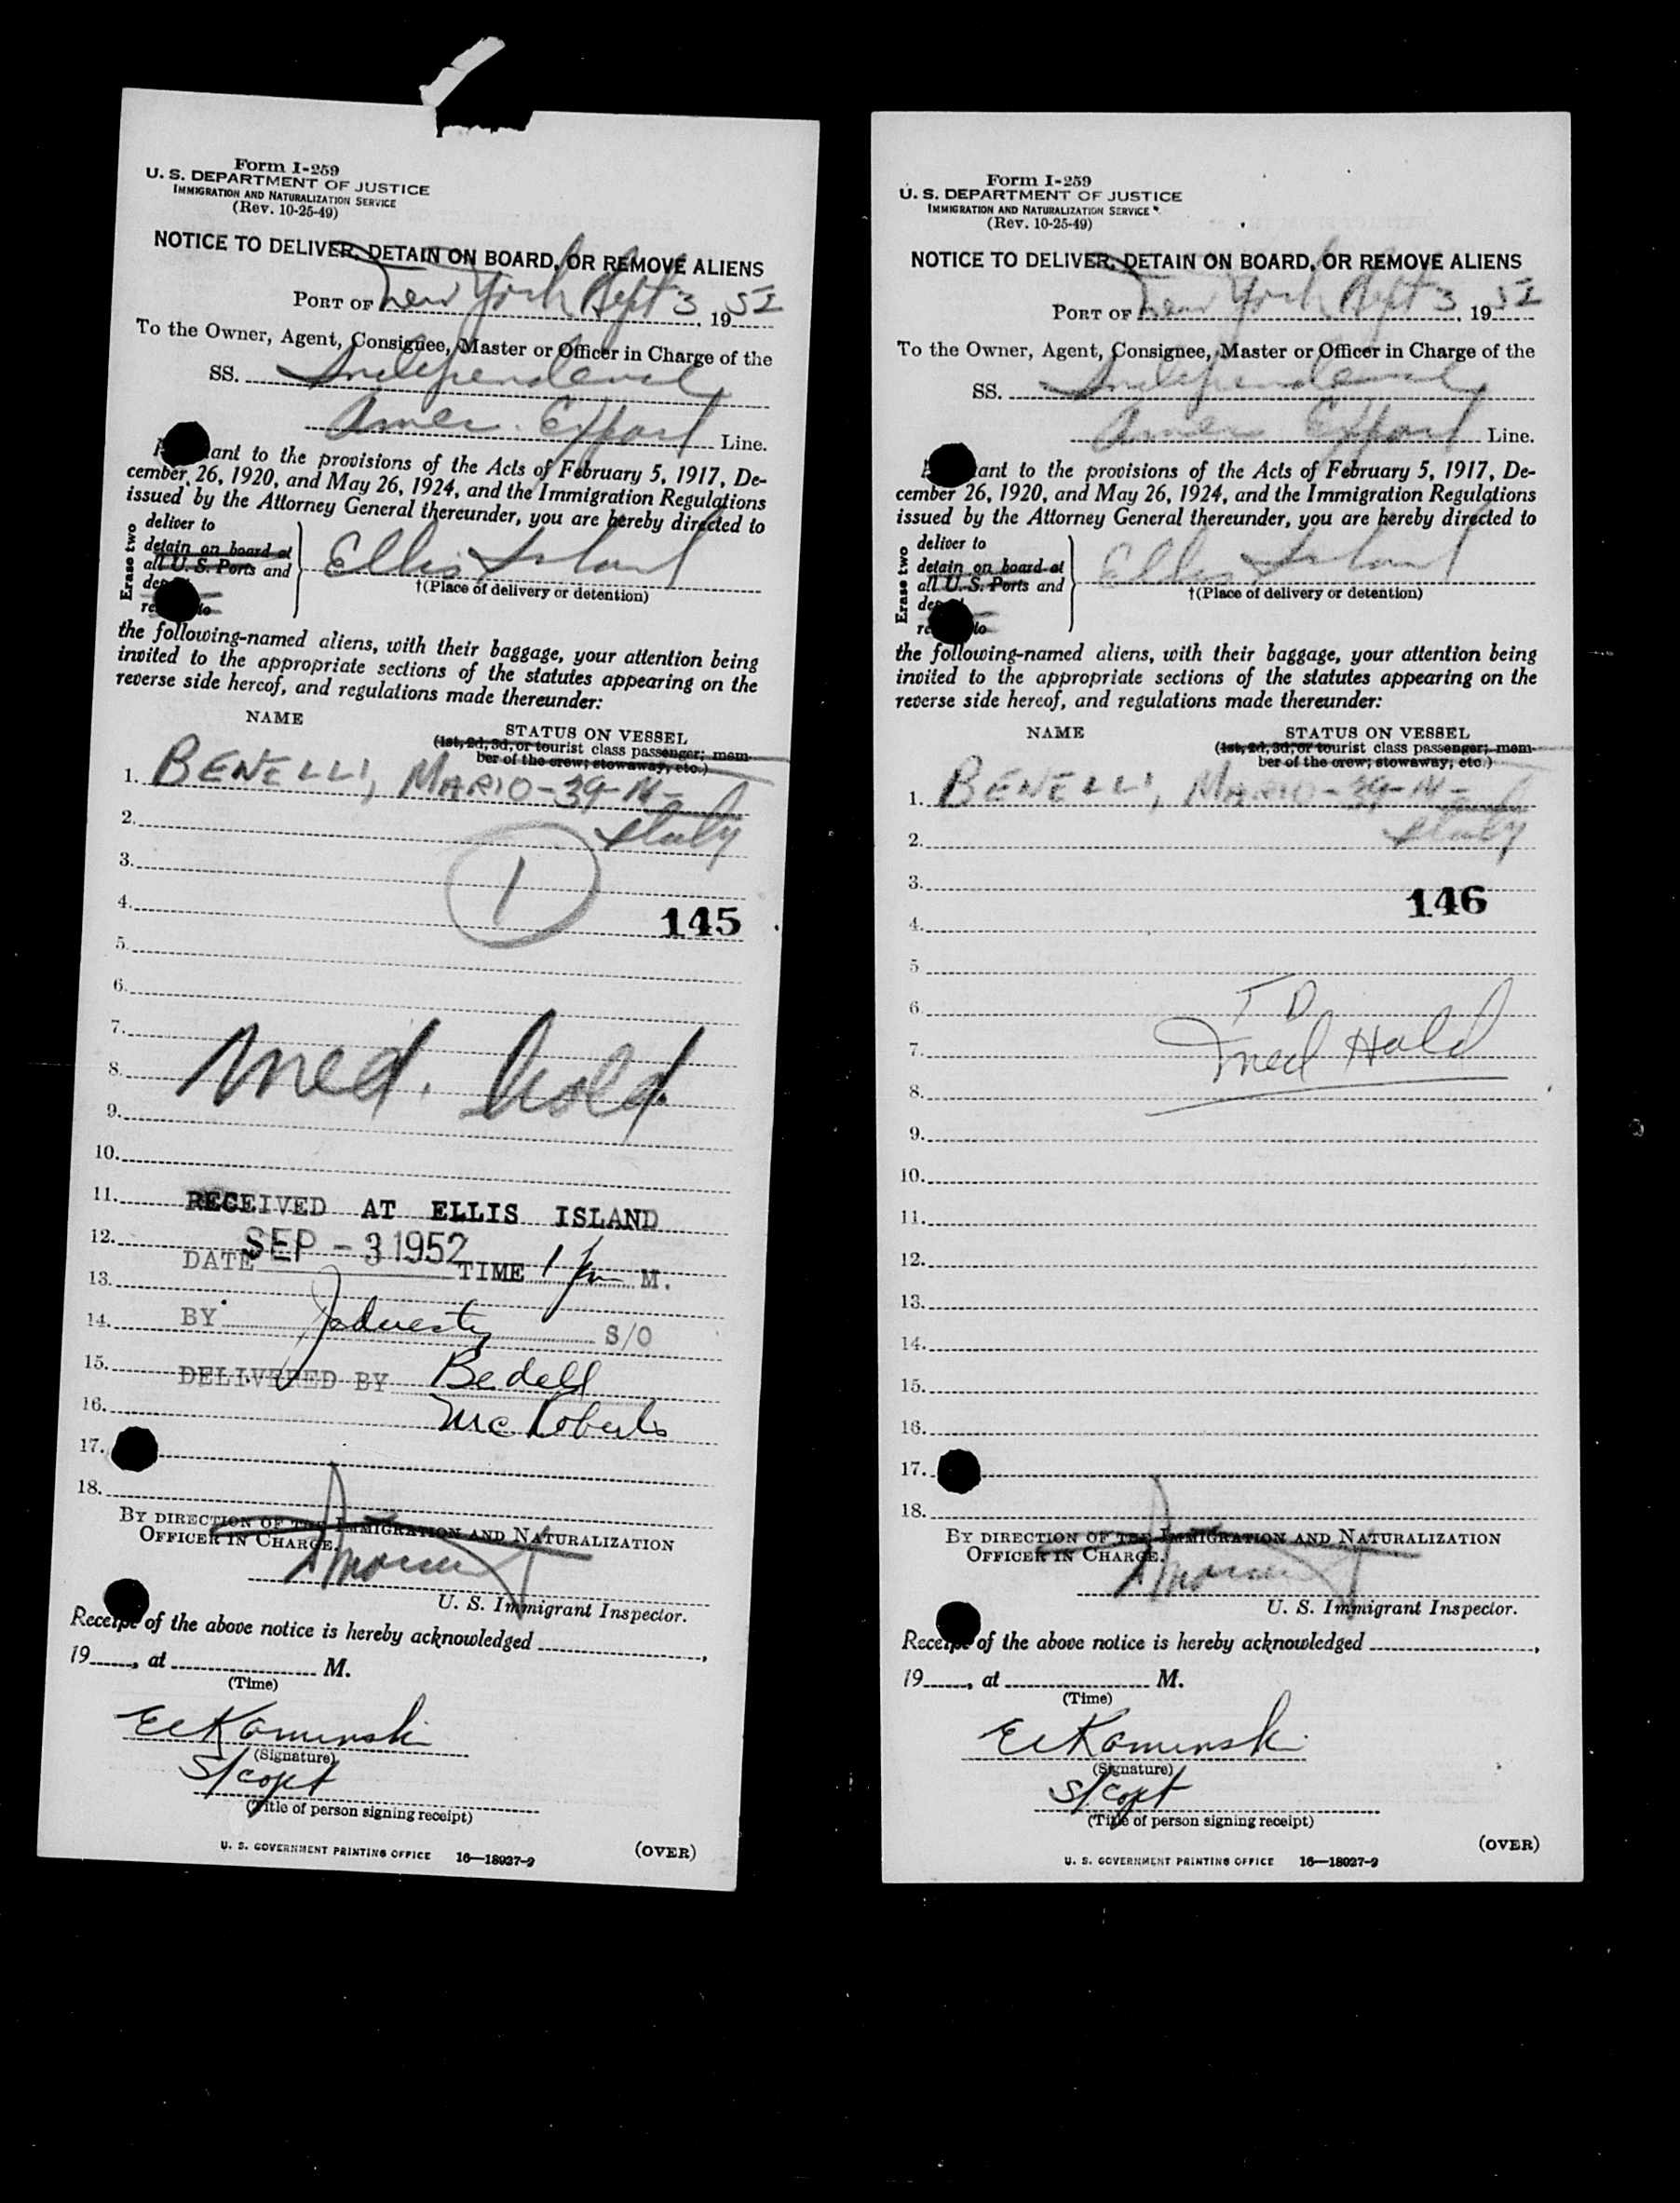 Form I-259
U. S. DEPARTMENT OF JUSTICE
IMMIGRATION AND NATURALIZATION SERVICE
(Rev. 10-25-49)
NOTICE TO DELIVER, DETAIN ON BOARD, OR REMOVE ALIENS
PORT OF New York Sept 3, 1952
To the Owner, Agent, Consignee, Master or Officer in Charge of the
SS. Independence
Amer. Export Line.
to the provisions of the Acts of February 5, 1917, De-
cember 26, 1920, and May 26, 1924, and the Immigration Regulations
issued by the Attorney General thereunder, you are hereby directed to
Erase two
deliver to
detain on board at
all U. S. Ports and
Ellis Island
†(Place of delivery or detention)
the following-named aliens, with their baggage, your attention being
invited to the appropriate sections of the statutes appearing on the
reverse side hereof, and regulations made thereunder:
NAME STATUS ON VESSEL
(1st, 2d, 3d, or tourist class passenger; mem-
ber of the crew; stowaway, etc.)
1. BENELLI, MARIO-39-M-
2. Italy
3. 1
4. 145
5.
6.
7.
8. Med. hold.
9.
10.
11. RECEIVED AT ELLIS ISLAND
12. DATE SEP - 3 1952 TIME 1 pm M.
13.
14. BY S/O
15. DELIVERED BY Bedell
16. McRoberts
17.
18.
BY DIRECTION OF THE IMMIGRATION AND NATURALIZATION
OFFICER IN CHARGE.
U. S. Immigrant Inspector.
Receipt of the above notice is hereby acknowledged ,
19 , at M.
(Time)
Kaminski
(Signature)
S/Capt
(Title of person signing receipt)
U. S. GOVERNMENT PRINTING OFFICE 16—18027-2 (OVER)
Form I-259
U. S. DEPARTMENT OF JUSTICE
IMMIGRATION AND NATURALIZATION SERVICE
(Rev. 10-25-49)
NOTICE TO DELIVER, DETAIN ON BOARD, OR REMOVE ALIENS
PORT OF New York Sept 3, 1952
To the Owner, Agent, Consignee, Master or Officer in Charge of the
SS. Independence
Amer Export Line.
to the provisions of the Acts of February 5, 1917, De-
cember 26, 1920, and May 26, 1924, and the Immigration Regulations
issued by the Attorney General thereunder, you are hereby directed to
Erase two
deliver to
detain on board at
all U. S. Ports and
Ellis Island
†(Place of delivery or detention)
the following-named aliens, with their baggage, your attention being
invited to the appropriate sections of the statutes appearing on the
reverse side hereof, and regulations made thereunder:
NAME STATUS ON VESSEL
(1st, 2d, 3d, or tourist class passenger; mem-
ber of the crew; stowaway, etc.)
1. BENELLI, MARIO-39-M-
2. Italy
3. 146
4.
5
6. T D
7. Med Hold
8.
9.
10.
11.
12.
13.
14.
15.
16.
17.
18.
BY DIRECTION OF THE IMMIGRATION AND NATURALIZATION
OFFICER IN CHARGE.
U. S. Immigrant Inspector.
Receipt of the above notice is hereby acknowledged ,
19 , at M.
(Time)
Kaminski
(Signature)
S/Capt
(Title of person signing receipt)
U. S. GOVERNMENT PRINTING OFFICE 16—18027-2 (OVER)